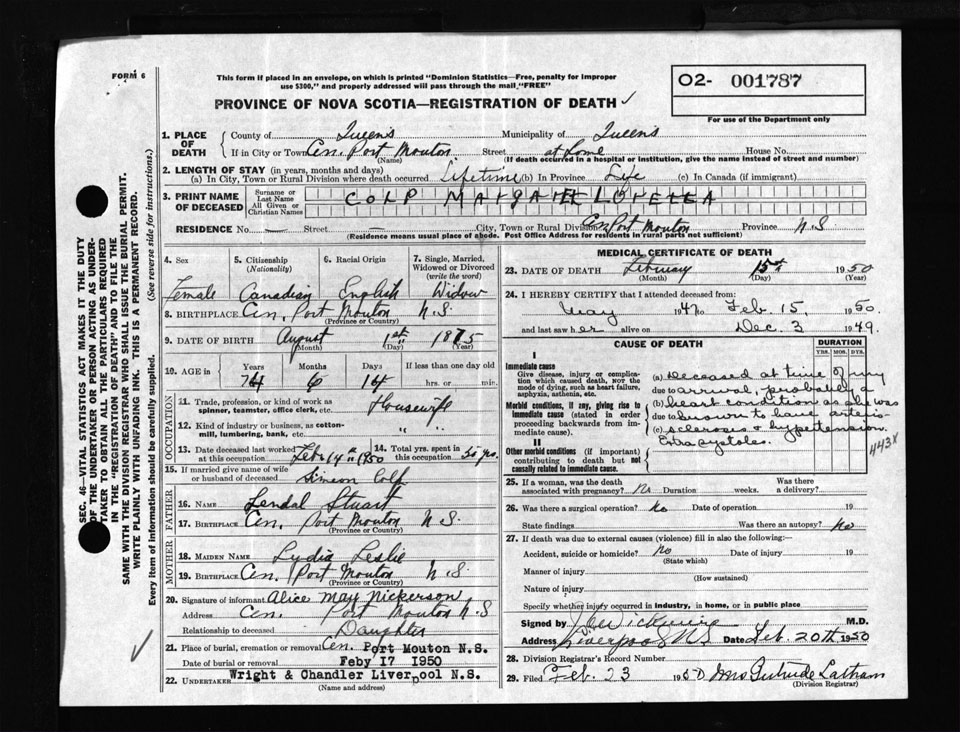 FORM 6
This form if placed in an envelope, on which is printed "Dominion Statistics—Free, penalty for improper
use $300," and properly addressed will pass through the mail "FREE"
PROVINCE OF NOVA SCOTIA—REGISTRATION OF DEATH
O2- 001787
For use of the Department only
1. PLACE OF DEATH
County of Queens Municipality of Queens
If in City or Town Cen. Port Mouton Street at home House No.
(Name) (If death occurred in a hospital or institution, give the name instead of street and number)
2. LENGTH OF STAY (in years, months and days)
(a) In City, Town or Rural Division where death occurred Lifetime (b) In Province Life (c) In Canada (if immigrant)
3. PRINT NAME OF DECEASED
Surname or Last Name
All Given or Christian Names
COLP LORETTA
RESIDENCE No. — Street — City, Town or Rural Division Cen Port Mouton Province N.S
(Residence means usual place of abode. Post Office Address for residents in rural parts not sufficient)
4. Sex 5. Citizenship (Nationality) 6. Racial Origin 7. Single, Married, Widowed or Divorced (write the word)
Female Canadian English Widow
8. BIRTHPLACE Cen. Port Mouton N.S.
(Province or Country)
9. DATE OF BIRTH August 1st 1875
(Month) (Day) (Year)
10. AGE in Years Months Days If less than one day old
74 6 14 hrs. or min.
OCCUPATION
11. Trade, profession or kind of work as spinner, teamster, office clerk, etc. Housewife
12. Kind of industry or business, as cotton-mill, lumbering, bank, etc. " "
13. Date deceased last worked at this occupation Feb 14th 1950 14. Total yrs. spent in this occupation 50 yrs.
15. If married give name of wife or husband of deceased Simeon Colp
FATHER
16. NAME Lendal Stuart
17. BIRTHPLACE Cen. Port Mouton N.S.
(Province or Country)
MOTHER
18. MAIDEN NAME Lydia Leslie
19. BIRTHPLACE Cen. Port Mouton N.S
(Province or Country)
20. Signature of informant Alice May Nickerson
Address Cen. Port Mouton N.S
Relationship to deceased Daughter
21. Place of burial, cremation or removal Cen. Port Mouton N.S.
Date of burial or removal Feby 17 1950
22. UNDERTAKER Wright & Chandler Liverpool N.S.
(Name and address)
MEDICAL CERTIFICATE OF DEATH
23. DATE OF DEATH February 15th 1950
(Month) (Day) (Year)
24. I HEREBY CERTIFY that I attended deceased from:
May 1947 to Feb. 15, 1950.
and last saw her alive on Dec. 3 1949.
CAUSE OF DEATH
DURATION
YRS. MOS. DYS.
I
Immediate cause
Give disease, injury or complication which caused death, NOT the mode of dying, such as heart failure, asphyxia, asthenia, etc.
Morbid conditions, if any, giving rise to immediate cause (stated in order proceeding backwards from immediate cause).
II
Other morbid conditions (if important) contributing to death but not causally related to immediate cause.
(a) Deceased at time of my
due to arrival, probably a
(b) heart condition as she was
due to known to have arterio-
(c) sclerosis & hypertension.
Extra systoles.
443X
25. If a woman, was the death associated with pregnancy? No Duration weeks. Was there a delivery?
26. Was there a surgical operation? No Date of operation 19
State findings Was there an autopsy? No
27. If death was due to external causes (violence) fill in also the following:—
Accident, suicide or homicide? No Date of injury 19
(State which)
Manner of injury
(How sustained)
Nature of injury
Specify whether injury occurred in industry, in home, or in public place
Signed by M.D.
Address Liverpool N.S Date Feb. 20th 1950
28. Division Registrar's Record Number
29. Filed Feb. 23 1950 Mrs Gertrude Latham
(Division Registrar)
SEC. 46—VITAL STATISTICS ACT MAKES IT THE DUTY
OF THE UNDERTAKER OR PERSON ACTING AS UNDER-
TAKER TO OBTAIN ALL THE PARTICULARS REQUIRED
IN THE "REGISTRATION OF DEATH" AND TO FILE THE
SAME WITH THE DIVISION REGISTRAR WHO SHALL ISSUE THE BURIAL PERMIT.
WRITE PLAINLY WITH UNFADING INK. THIS IS A PERMANENT RECORD.
Every item of information should be carefully supplied. (See reverse side for instructions.)